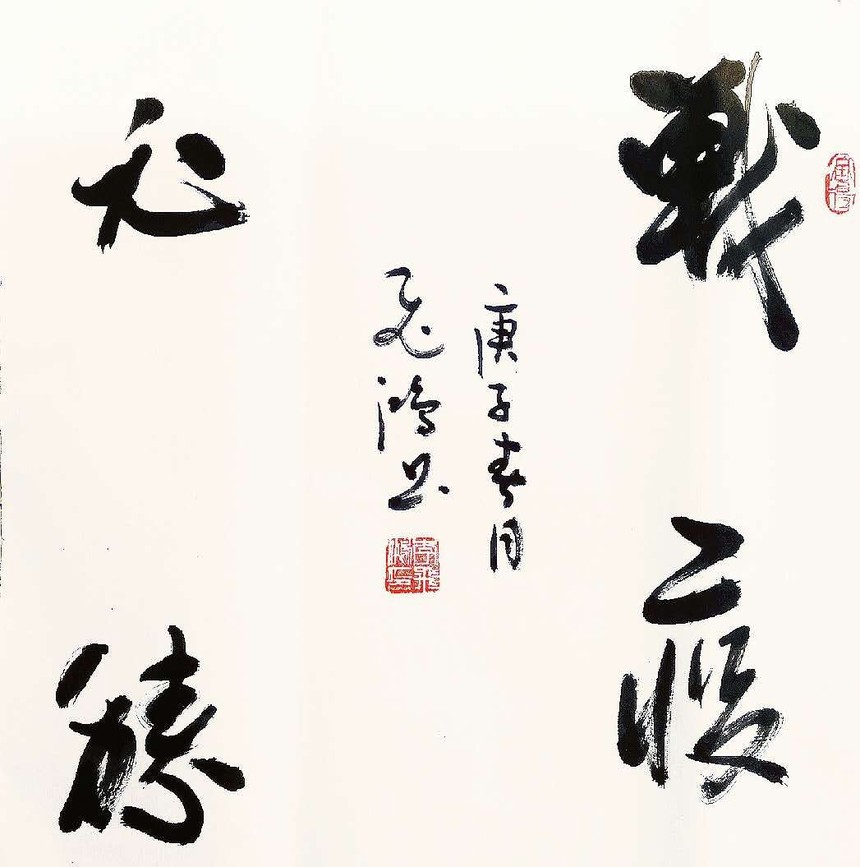 戰疫
必勝
庚子春月
飛鴻书